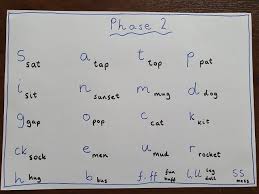 Phase 2
s sat a tap t top p pat
i sit n sunset m mug d dog
g gap o pop c cat k kit
ck sock e men u mud r rocket
h hug b bus f.ff fun huff l.ll leg doll ss mess